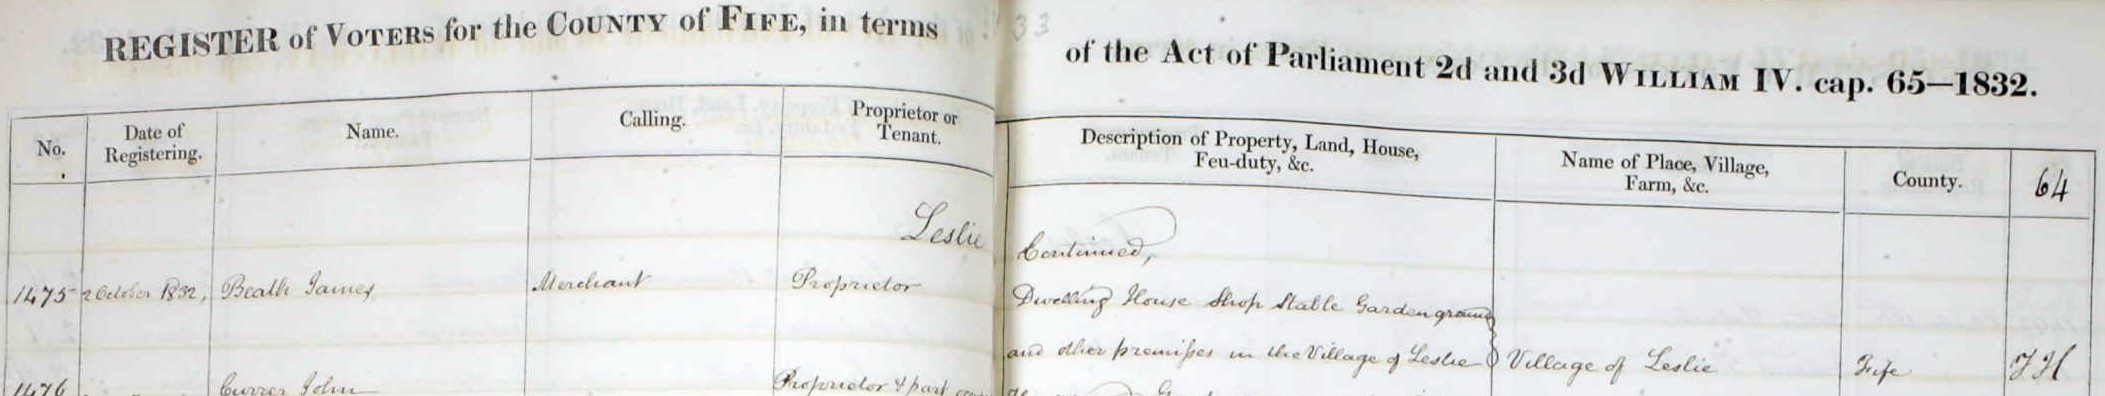 REGISTER of VOTERS for the COUNTY of FIFE, in terms of the Act of Parliament 2d and 3d WILLIAM IV. cap. 65—1832.
33
No. Date of Registering. Name. Calling. Proprietor or Tenant. Description of Property, Land, House, Feu-duty, &c. Name of Place, Village, Farm, &c. County. 64
Leslie Continued,
1475 2 October 1832, Beath James Merchant Proprietor Dwelling House Shop Stable Garden ground
and other premises in the Village of Leslie Village of Leslie Fife
1476 Currer John Proprietor & part